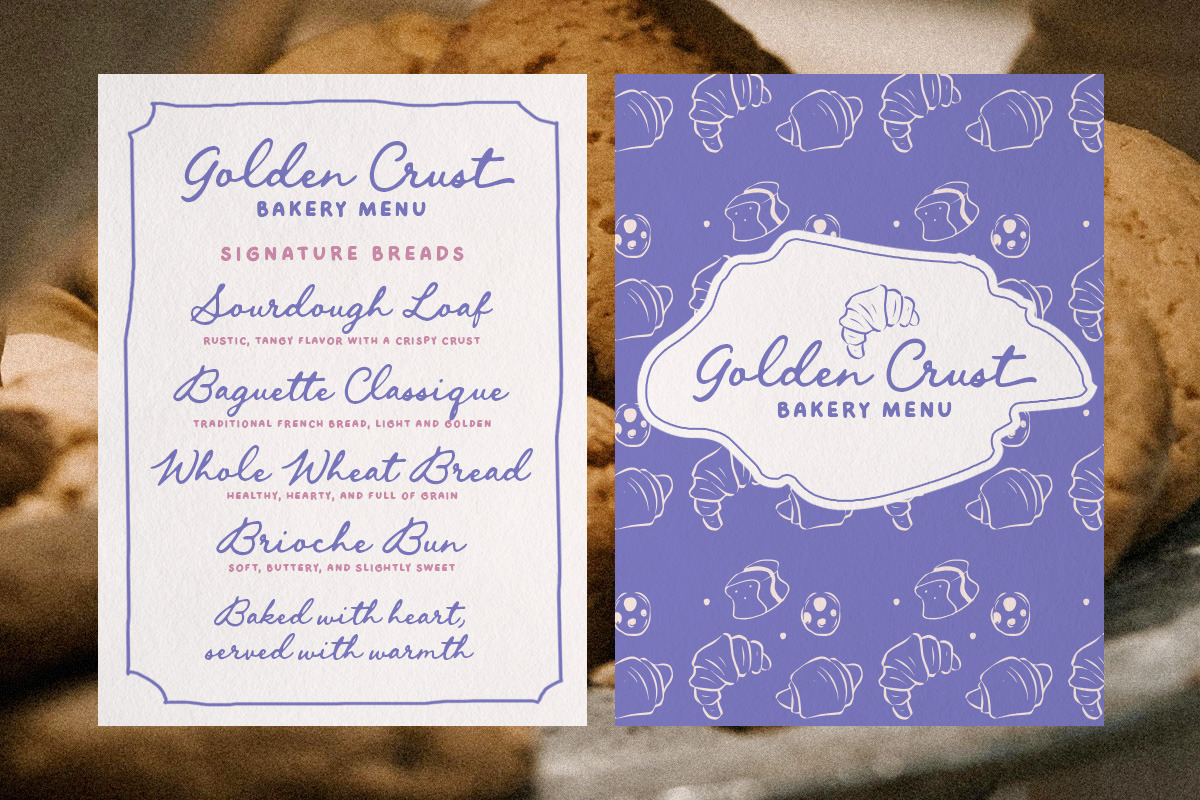 Golden Crust
BAKERY MENU
SIGNATURE BREADS
Sourdough Loaf
RUSTIC, TANGY FLAVOR WITH A CRISPY CRUST
Baguette Classique
TRADITIONAL FRENCH BREAD, LIGHT AND GOLDEN
Whole Wheat Bread
HEALTHY, HEARTY, AND FULL OF GRAIN
Brioche Bun
SOFT, BUTTERY, AND SLIGHTLY SWEET
Baked with heart,
served with warmth
Golden Crust
BAKERY MENU